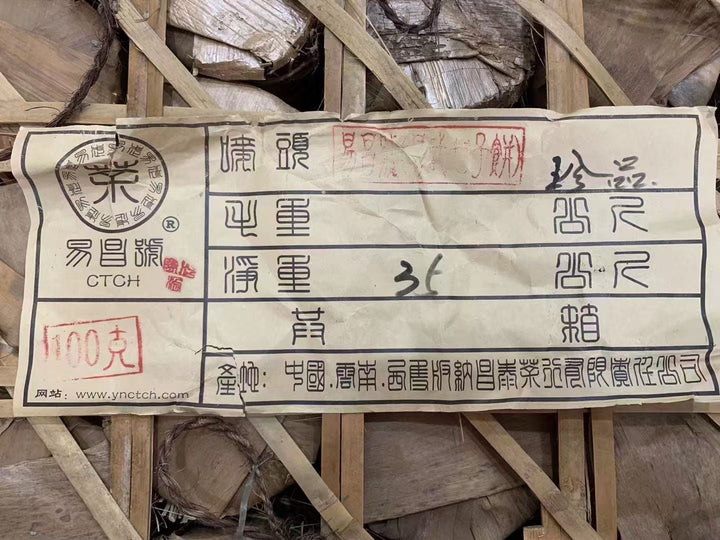 茶
易昌號®
CTCH
100克
网站：www.ynctch.com
嘜頭 易昌號 七子餅 珍品
毛重 公斤
淨重 35 公斤
箱
產地：中國.雲南.西雙版納昌泰茶行有限責任公司